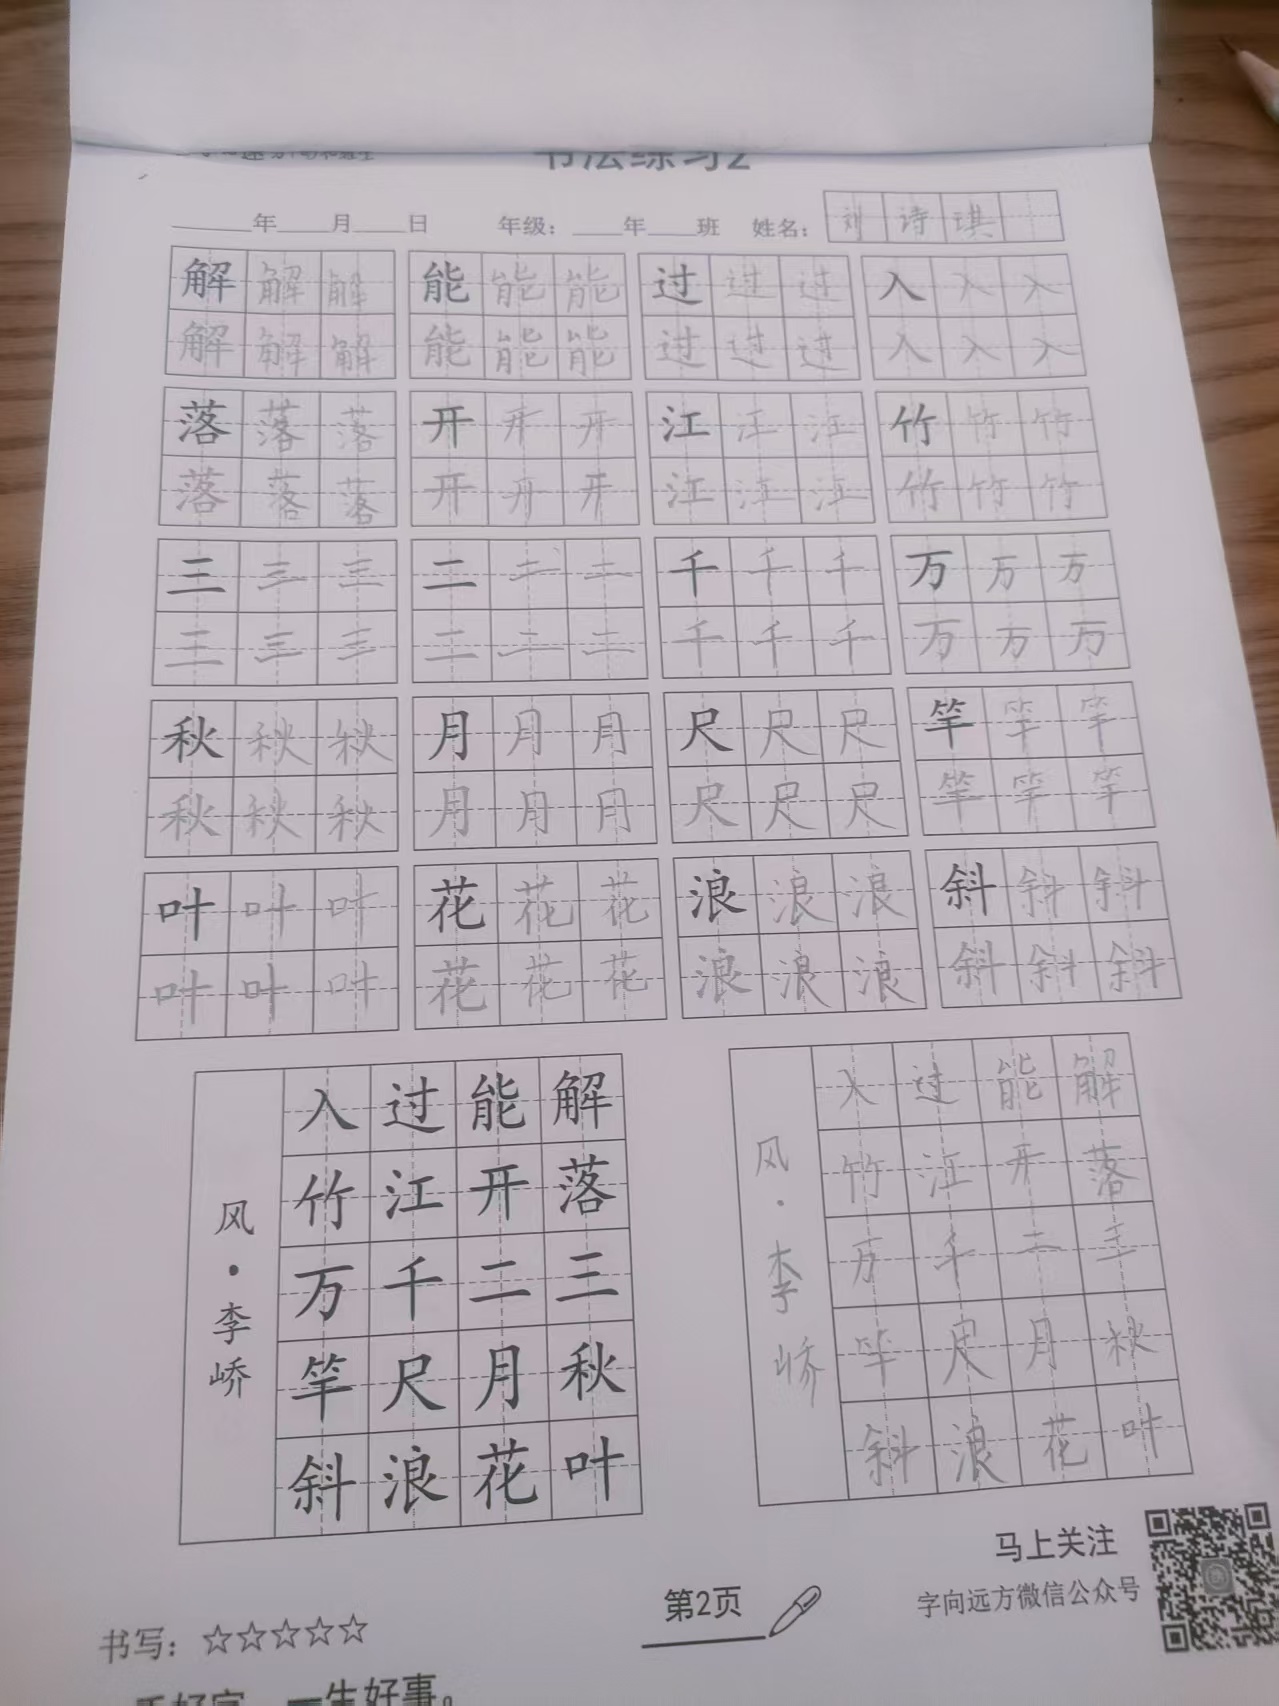 书法练习2
年 月 日 年级: 年 班 姓名: 刘诗琪
解解解 能能能 过过过 入入入
解解解 能能能 过过过 入入入
落落落 开开开 江江江 竹竹竹
落落落 开开开 江江江 竹竹竹
三三三 二二二 千千千 万万万
三三三 二二二 千千千 万万万
秋秋秋 月月月 尺尺尺 竿竿竿
秋秋秋 月月月 尺尺尺 竿竿竿
叶叶叶 花花花 浪浪浪 斜斜斜
叶叶叶 花花花 浪浪浪 斜斜斜
解落三秋叶
能开二月花
过江千尺浪
入竹万竿斜
风·李峤
解落三秋叶
能开二月花
过江千尺浪
入竹万竿斜
风·李峤
马上关注
字向远方微信公众号
第2页
书写：☆☆☆☆☆
一生好事。